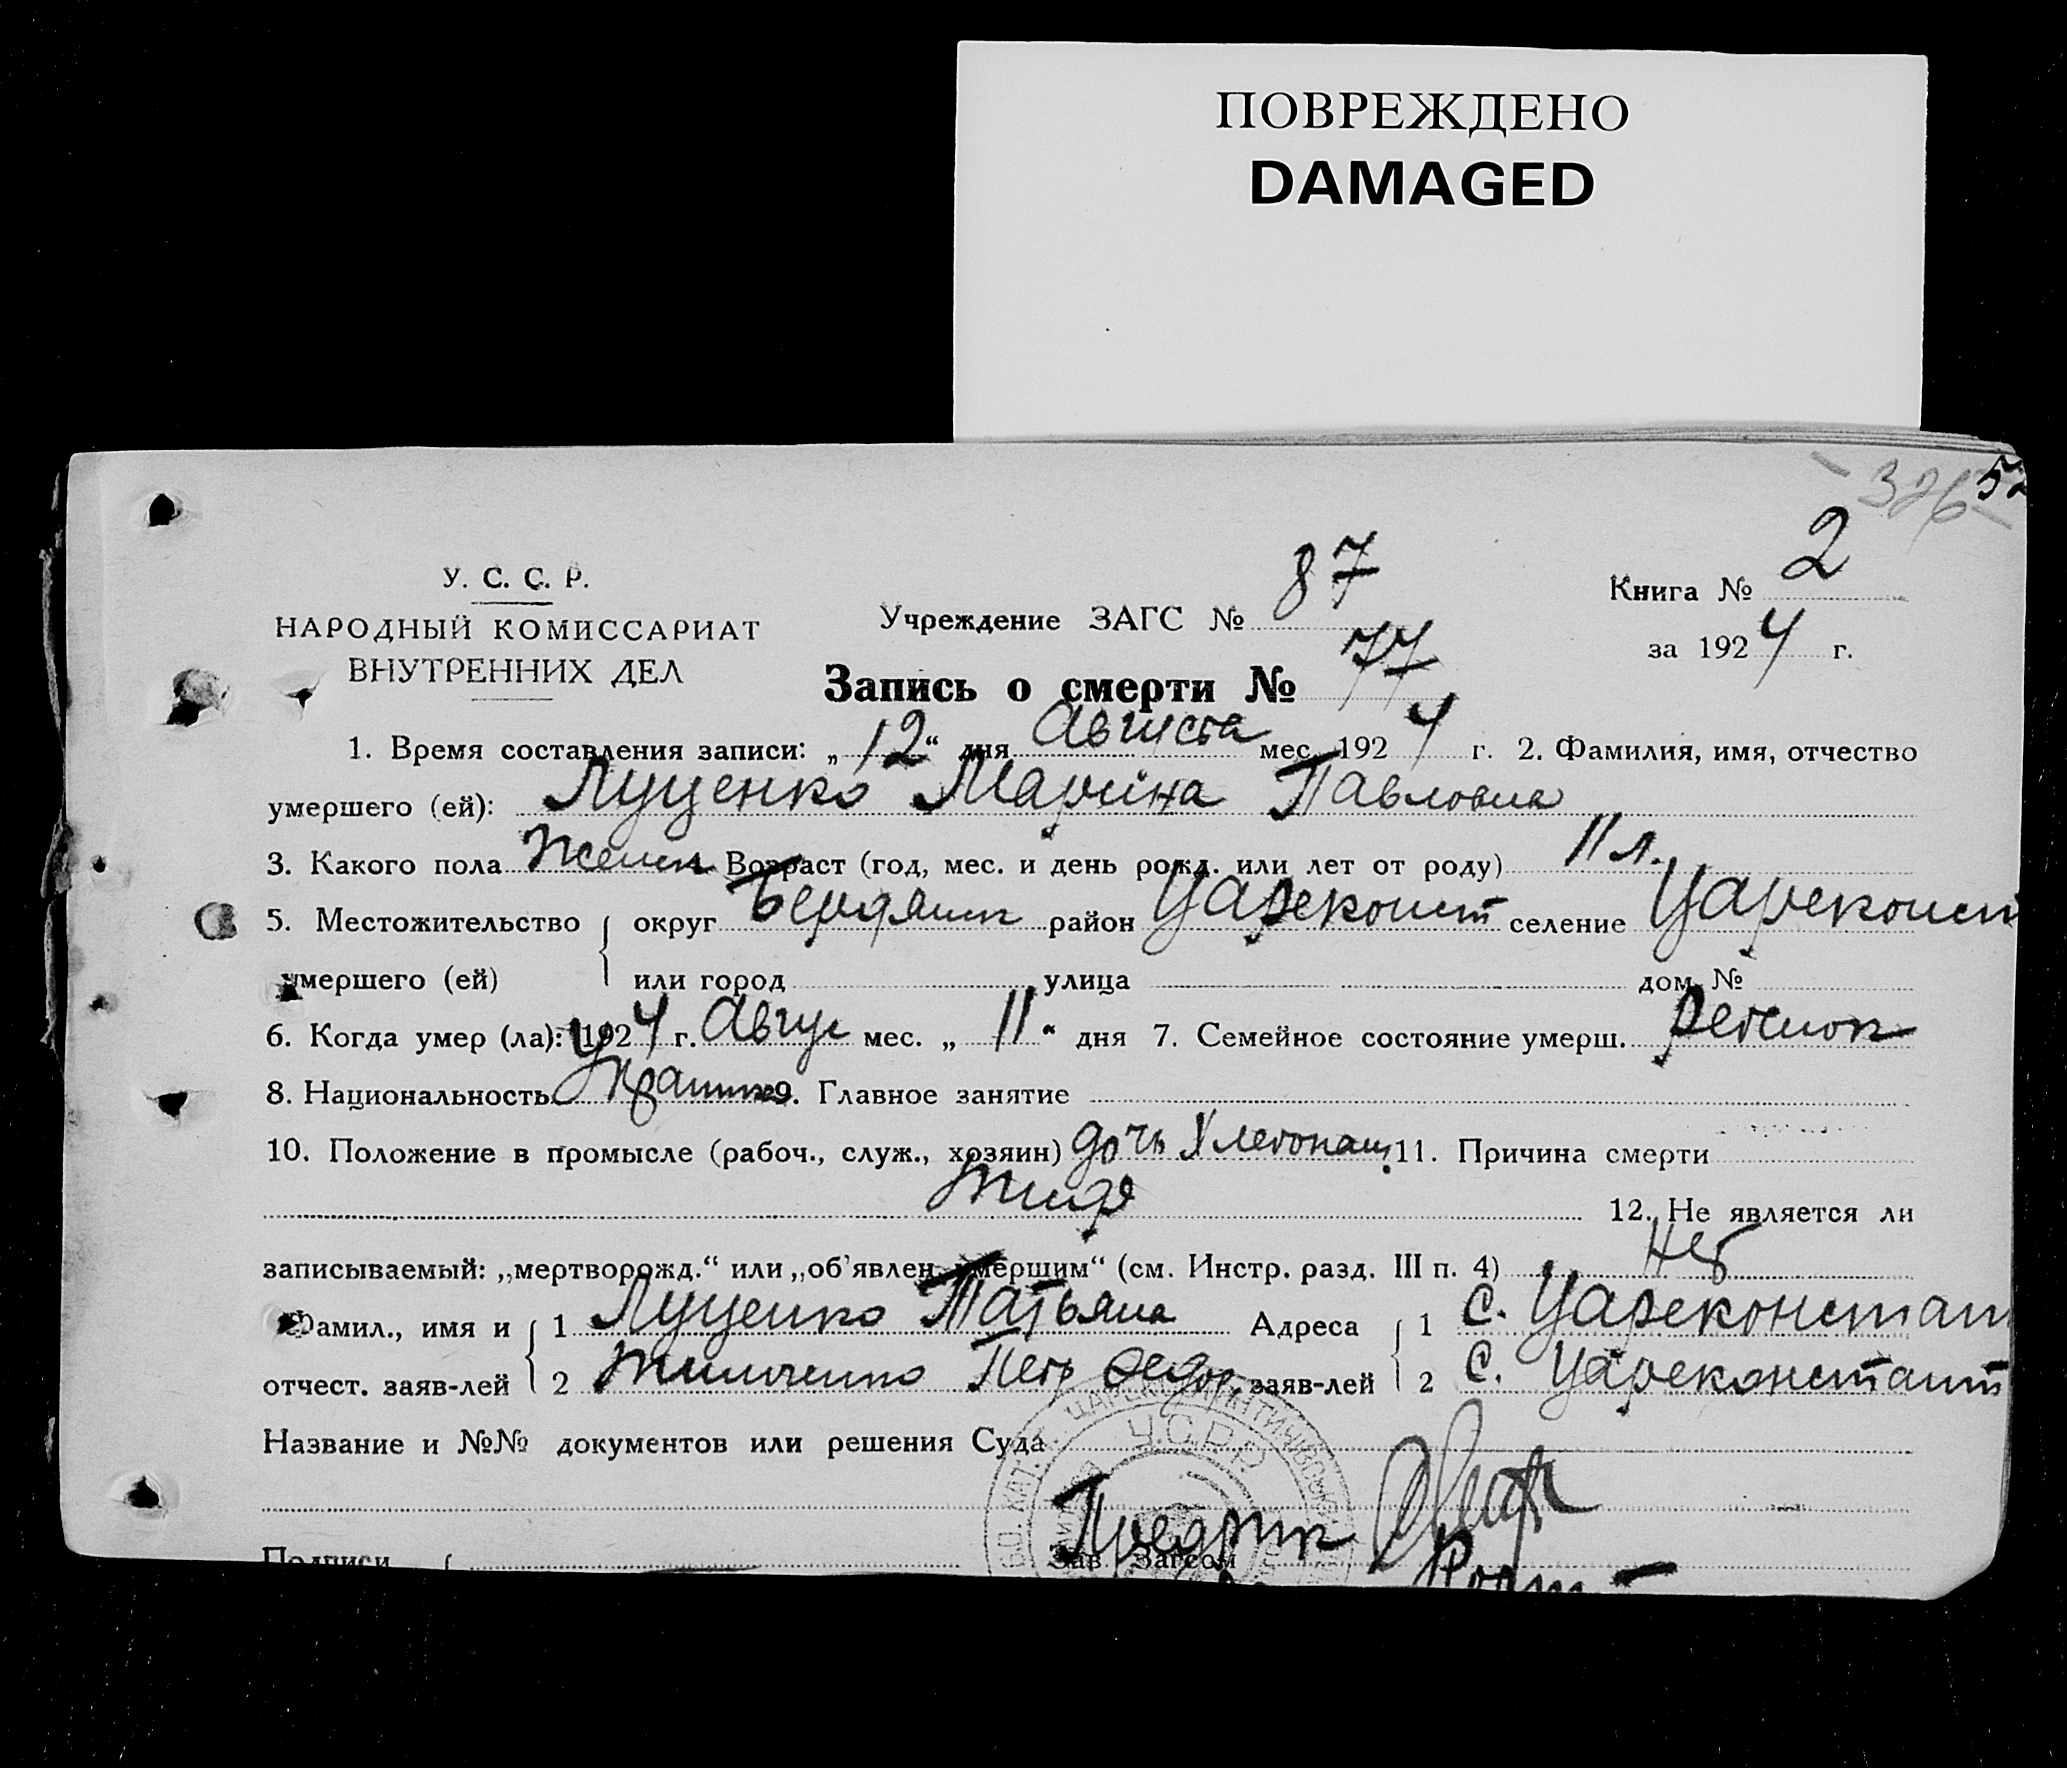 ПОВРЕЖДЕНО
DAMAGED
326 52
У. С. С. Р.
НАРОДНЫЙ КОМИССАРИАТ
ВНУТРЕННИХ ДЕЛ
Учреждение ЗАГС № 87
Книга № 2
за 1924 г.
Запись о смерти № 77
1. Время составления записи: „12“ дня Августа мес. 1924 г. 2. Фамилия, имя, отчество
умершего (ей): Луценко Марина Павловна
3. Какого пола женск Возраст (год, мес. и день рожд. или лет от роду) 11 л.
5. Местожительство округ Бердянск район Цареконст селение Цареконст
умершего (ей) или город улица дом №
6. Когда умер (ла): 1924 г. Авгус мес. „11“ дня 7. Семейное состояние умерш. ребенок
8. Национальность Украинк 9. Главное занятие
10. Положение в промысле (рабоч., служ., хозяин) дочь Хлебопаш 11. Причина смерти
Тиф
12. Не является ли
записываемый: „мертворожд.“ или „об'явлен. умершим“ (см. Инстр. разд. III п. 4) Нет
Фамил., имя и 1 Луценко Татьяна Адреса 1 С. Цареконстант
отчест. заяв-лей 2 Петр Федор. заяв-лей 2 С. Цареконстант
Название и №№ документов или решения Суда
У.С.Р.Р.
Предрик
Подписи Зав. Загсом